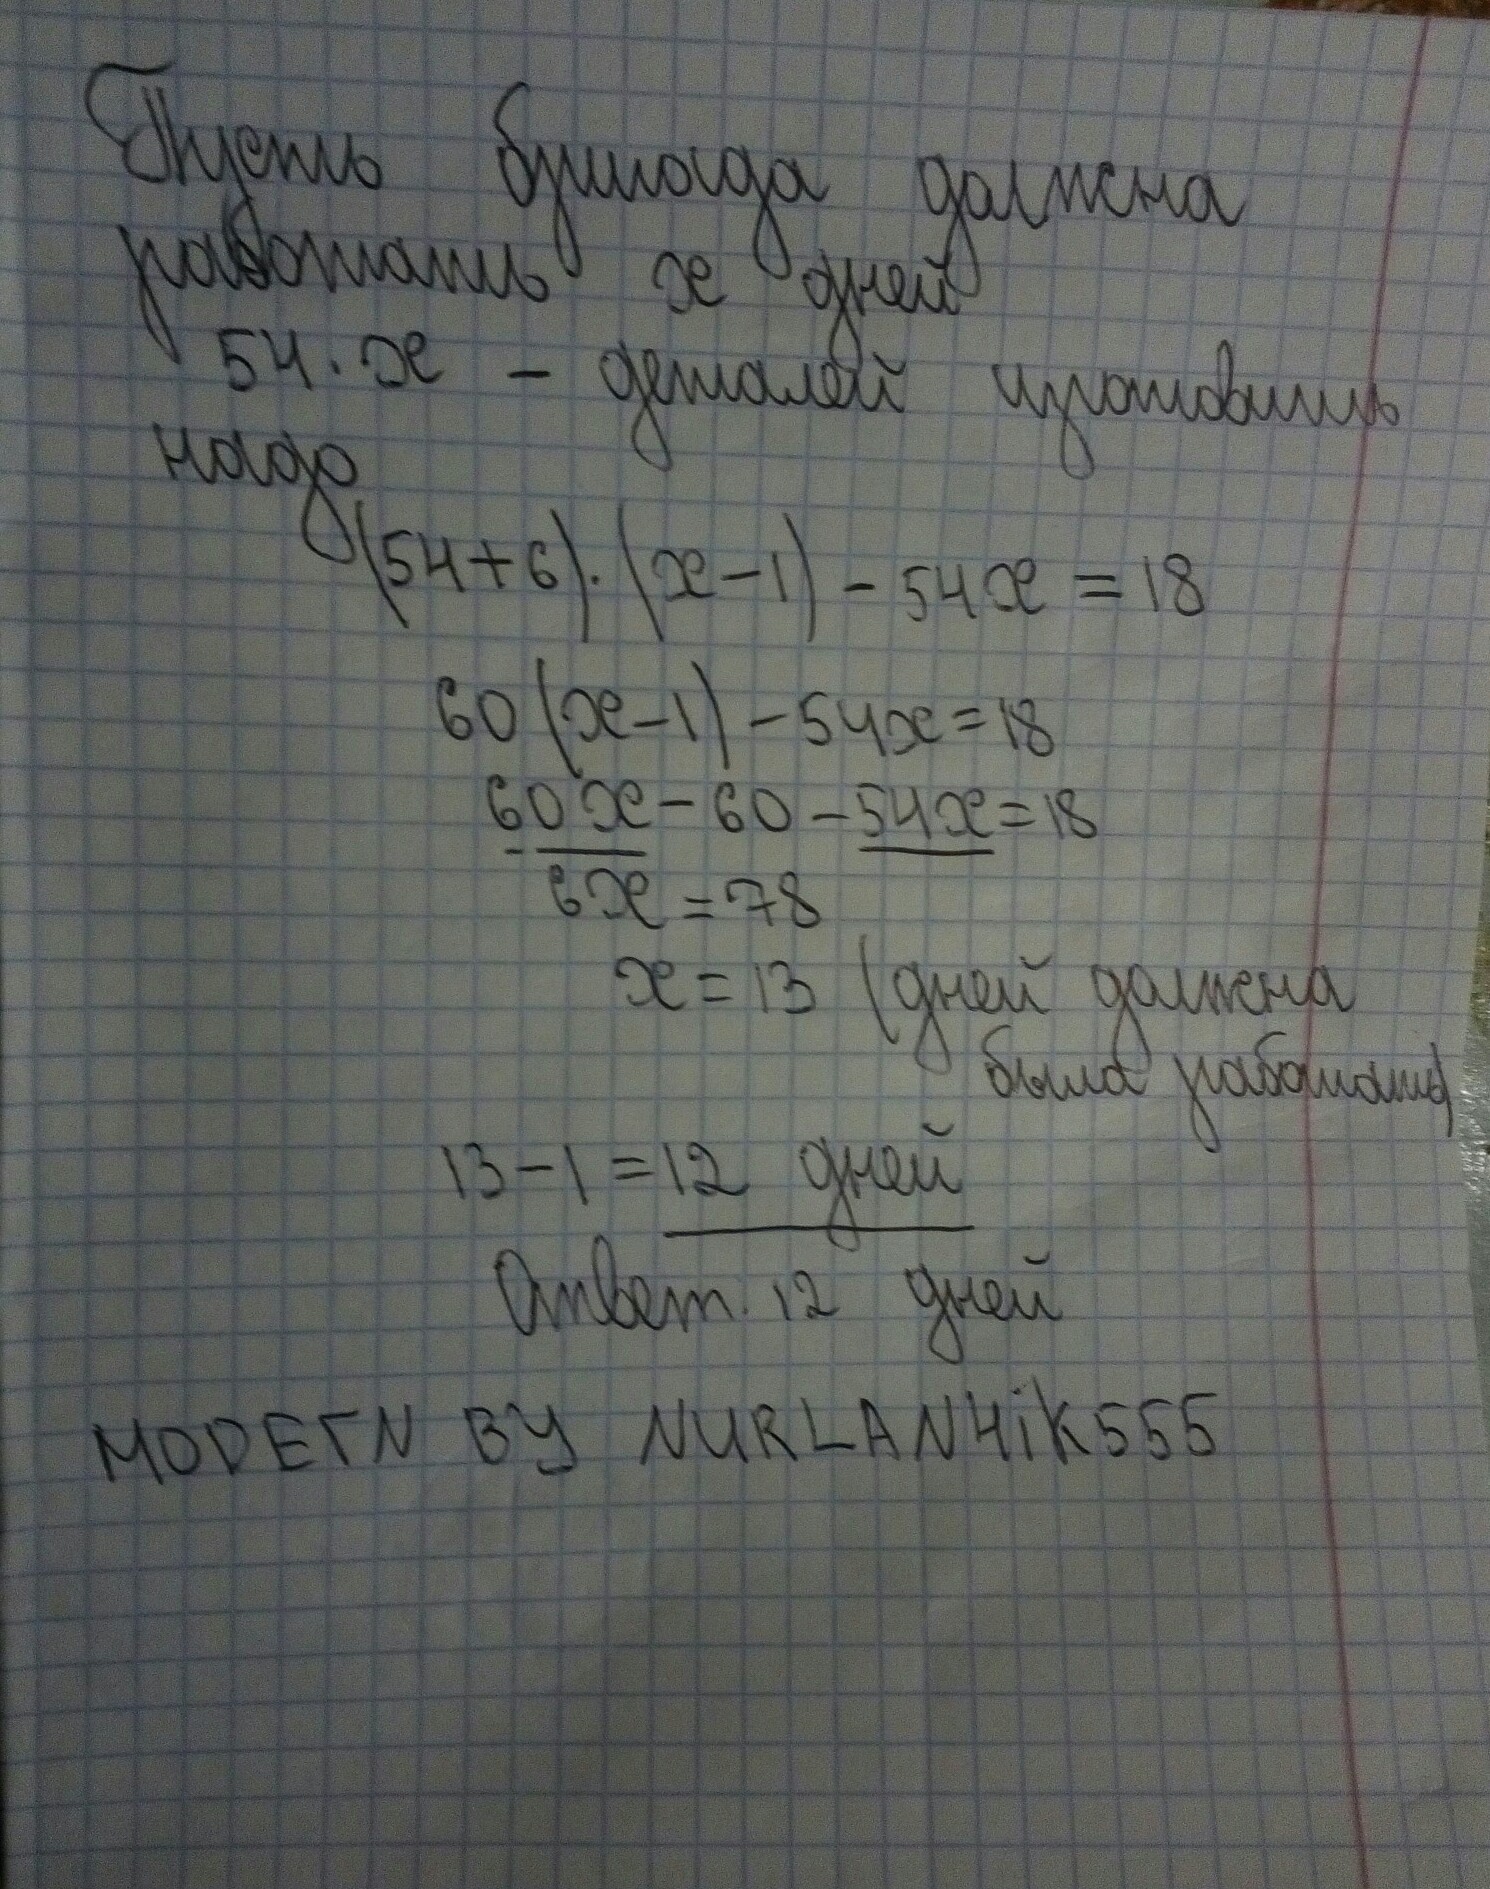 Пусть бригада должна
работать x дней
54·x – деталей изготовить
надо
(54+6)·(x-1)-54x=18
60(x-1)-54x=18
60x-60-54x=18
6x=78
x=13 (дней должна
была работать)
13-1=12 дней
Ответ: 12 дней
MODEГN BY NURLAN4iK555